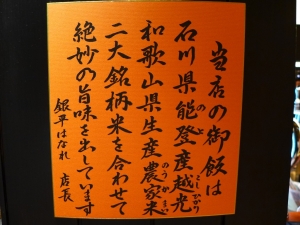 当店の御飯は
石川県能登産越光
のと
こしひかり
和歌山県生産農家米
のうかまい
二大銘柄米を合わせて
絶妙の旨味を出しています
銀平はなれ 店長